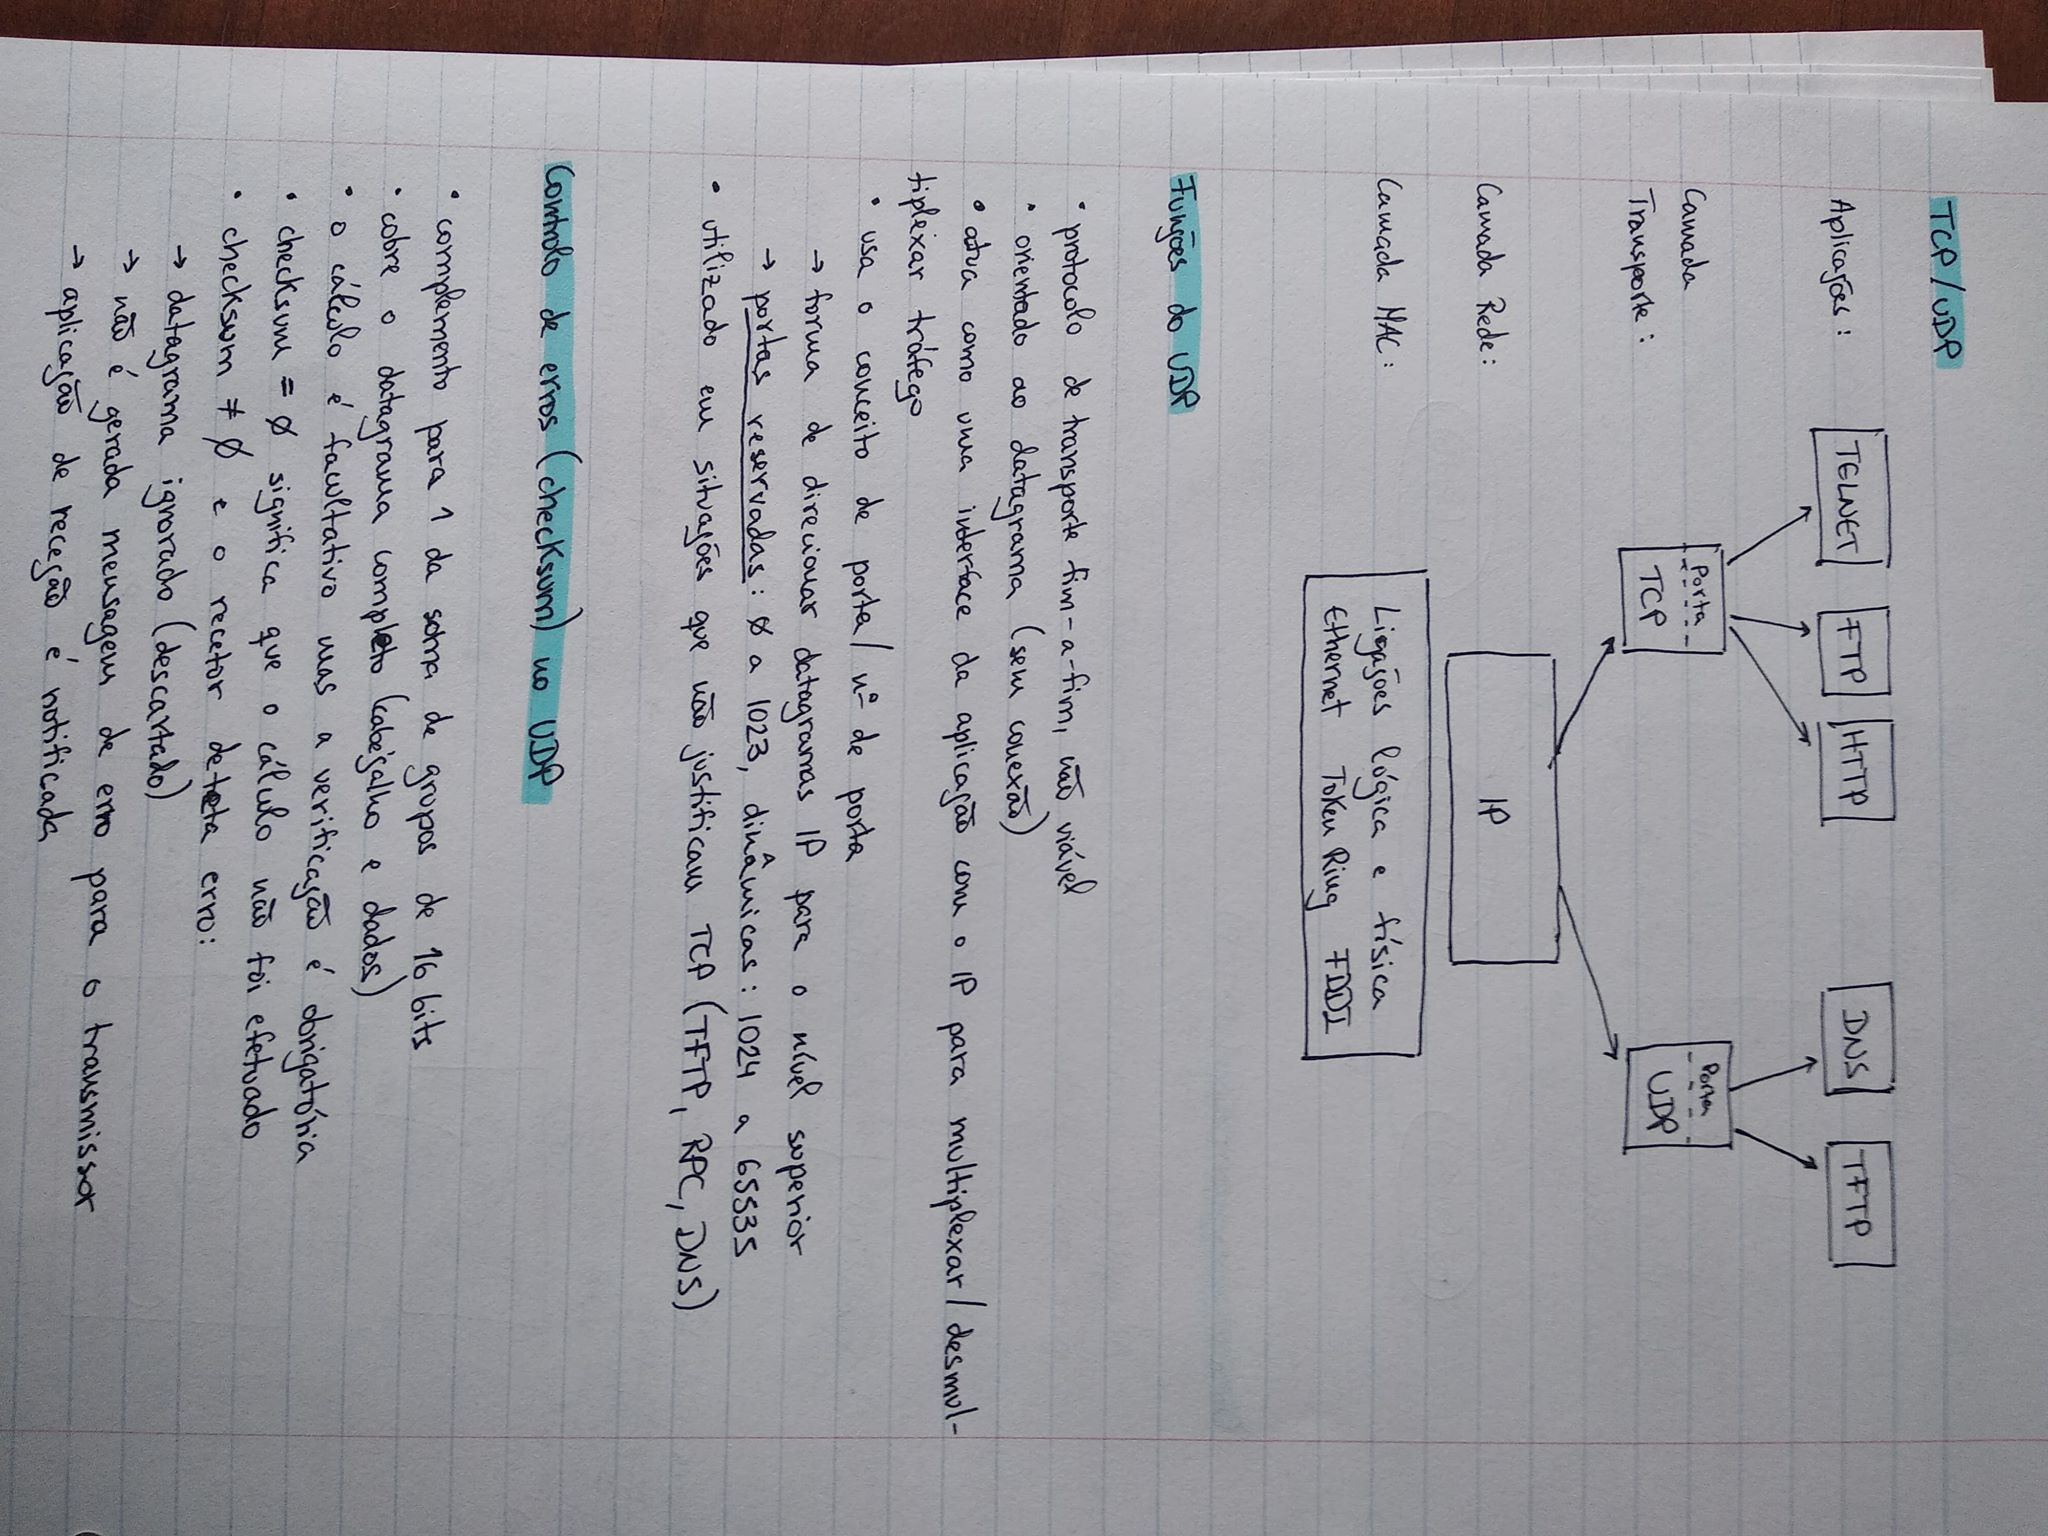 TCP/UDP
Aplicações: TELNET FTP HTTP DNS TFTP
Camada Porta Porta
Transporte: TCP UDP
Camada Rede: IP
Camada MAC: Ligações lógica e física
Ethernet Token Ring FDDI
Funções do UDP
• protocolo de transporte fim-a-fim, não viável
• orientado ao datagrama (sem conexão)
• atua como uma interface da aplicação com o IP para multiplexar/desmul-
tiplexar tráfego
• usa o conceito de porta/nº de porta
→ forma de direcionar datagramas IP para o nível superior
→ portas reservadas: 0 a 1023, dinâmicas: 1024 a 65535
• utilizado em situações que não justificam TCP (TFTP, RPC, DNS)
Controlo de erros (checksum) no UDP
• complemento para 1 da soma de grupos de 16 bits
• cobre o datagrama completo (cabeçalho e dados)
• o cálculo é facultativo mas a verificação é obrigatória
• checksum = 0 significa que o cálculo não foi efetuado
• checksum ≠ 0 e o recetor deteta erro:
→ datagrama ignorado (descartado)
→ não é gerada mensagem de erro para o transmissor
→ aplicação de receção é notificada